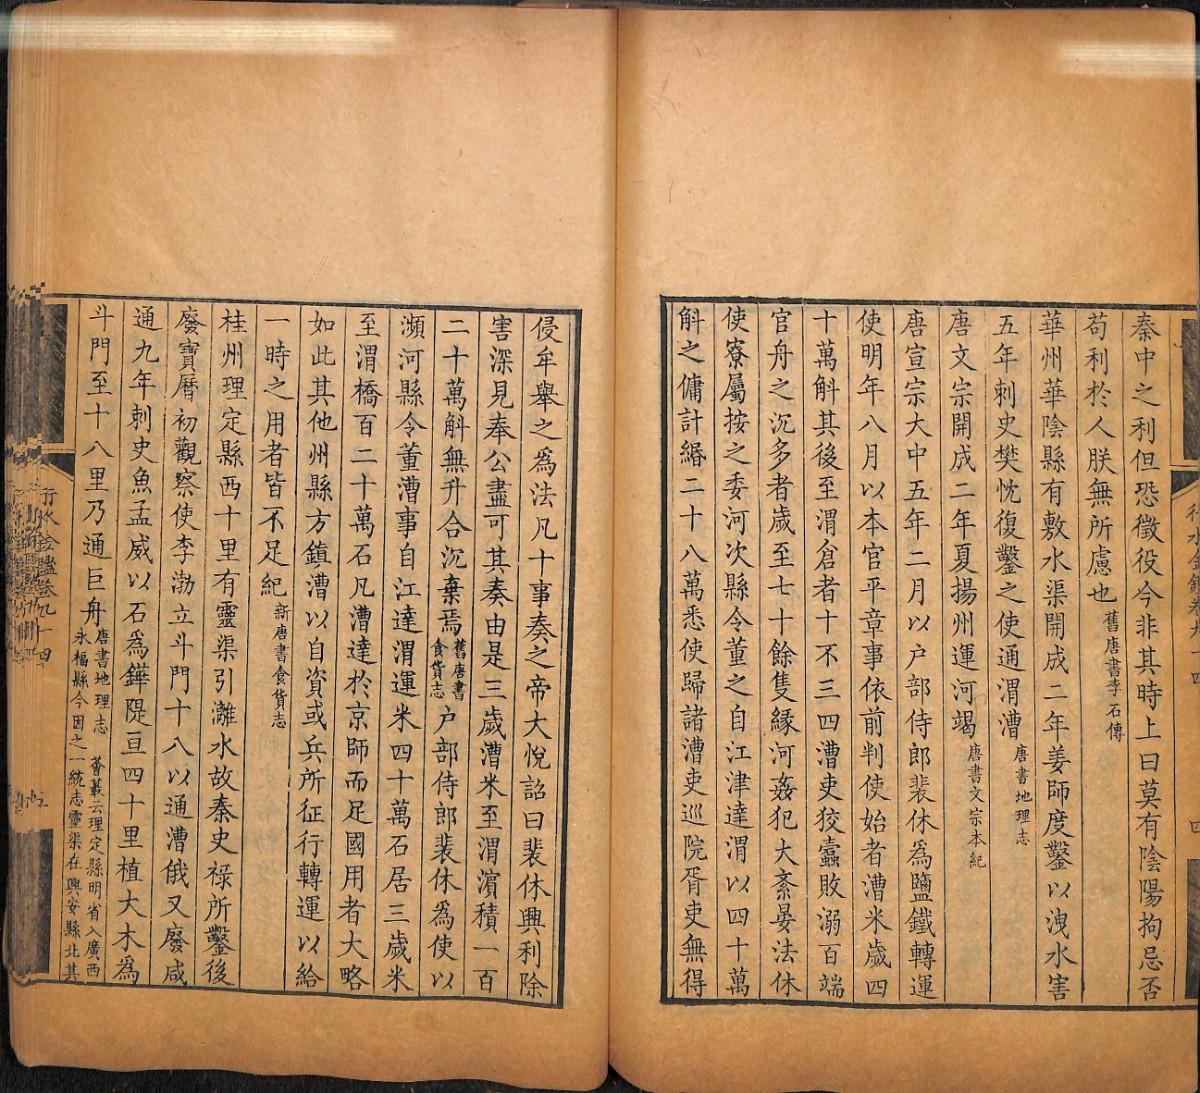 秦中之利但恐徵役今非其時上曰莫有陰陽拘忌否
苟利於人朕無所慮也舊唐書李石傳
華州華陰縣有敷水渠開成二年姜師度鑿以洩水害
五年刺史樊忱復鑿之使通渭漕唐書地理志
唐文宗開成二年夏揚州運河竭唐書文宗本紀
唐宣宗大中五年二月以户部侍郎裴休為鹽鐵轉運
使明年八月以本官平章事依前判使始者漕米歲四
十萬斛其後至渭倉者十不三四漕吏狡蠹敗溺百端
官舟之沉多者歲至七十餘隻緣河姦犯大紊晏法休
使寮屬按之委河次縣令董之自江津達渭以四十萬
斛之傭計緡二十八萬悉使歸諸漕吏巡院胥吏無得
侵牟舉之為法凡十事奏之帝大悅詔曰裴休興利除
害深見奉公盡可其奏由是三歲漕米至渭濱積一百
二十萬斛無升合沉棄焉舊唐書食貨志户部侍郎裴休為使以
瀕河縣令董漕事自江達渭運米四十萬石居三歲米
至渭橋百二十萬石凡漕達於京師而足國用者大略
如此其他州縣方鎮漕以自資或兵所征行轉運以給
一時之用者皆不足紀新唐書食貨志
桂州理定縣西十里有靈渠引灕水故秦史祿所鑿後
廢寶曆初觀察使李渤立斗門十八以通漕俄又廢咸
通九年刺史魚孟威以石為鏵隄亘四十里植大木為
斗門至十八里乃通巨舟唐書地理志 薈蕞云理定縣明省入廣西
永福縣今因之一統志靈渠在興安縣北其